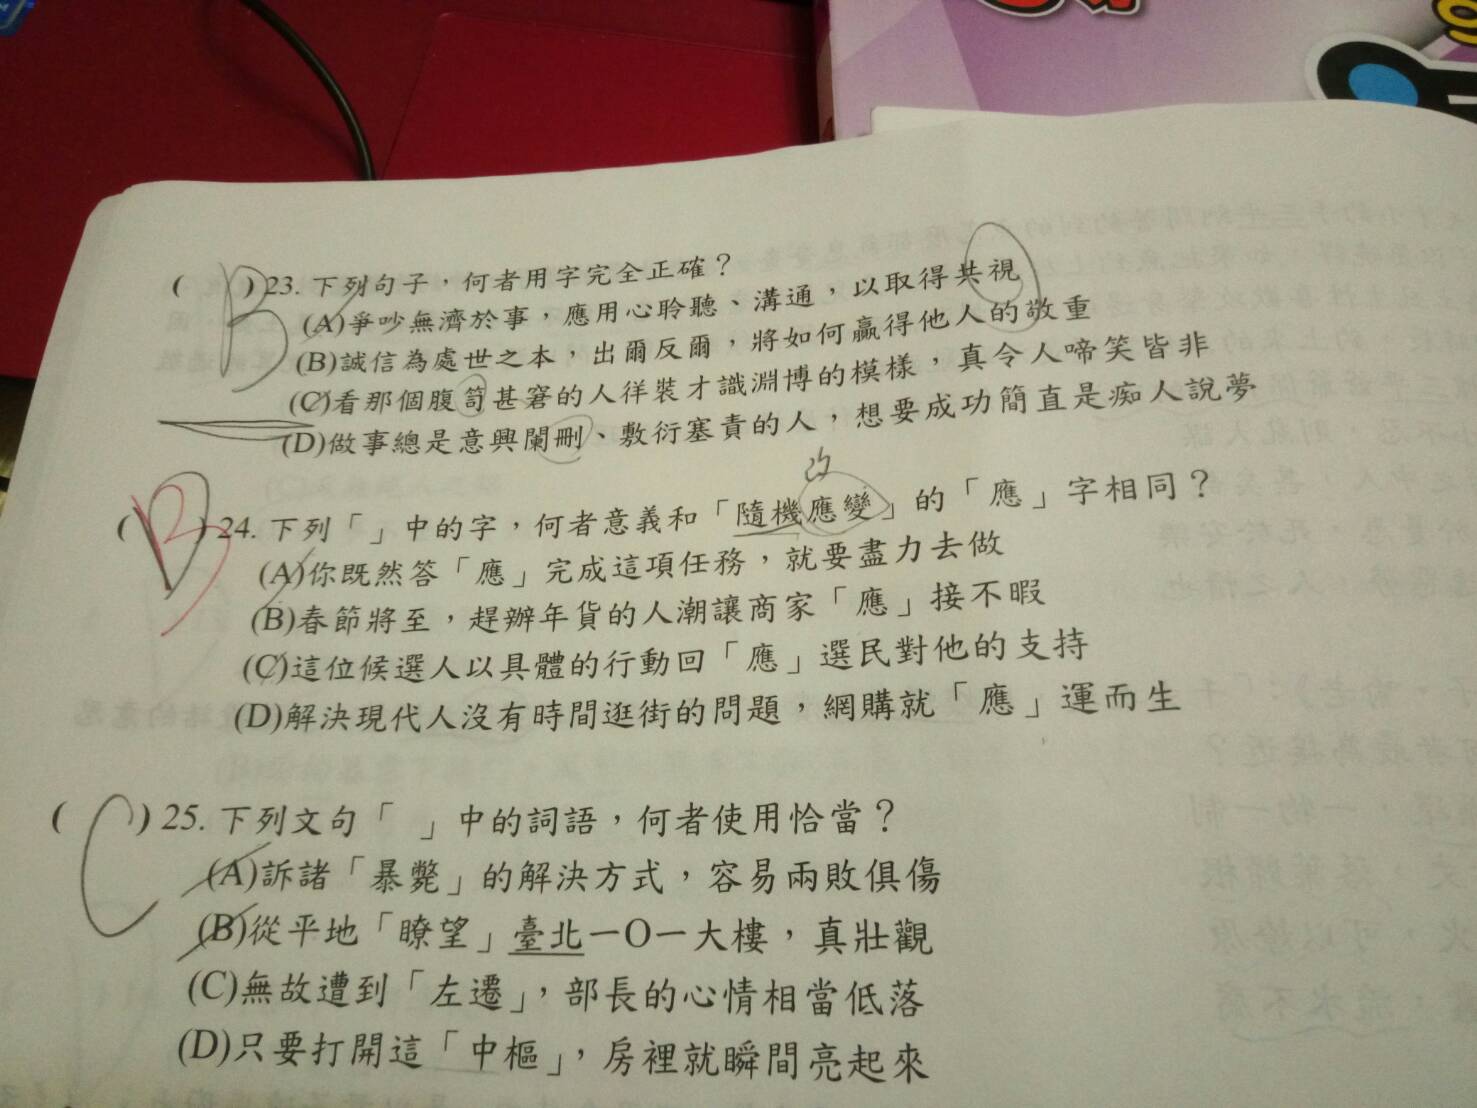 ( B )23. 下列句子，何者用字完全正確？
(A)爭吵無濟於事，應用心聆聽、溝通，以取得共視
(B)誠信為處世之本，出爾反爾，將如何贏得他人的敬重
(C)看那個腹笥甚窘的人徉裝才識淵博的模樣，真令人啼笑皆非
(D)做事總是意興闌刪、敷衍塞責的人，想要成功簡直是痴人說夢
改
( B )24. 下列「」中的字，何者意義和「隨機應變」的「應」字相同？
(A)你既然答「應」完成這項任務，就要盡力去做
(B)春節將至，趕辦年貨的人潮讓商家「應」接不暇
(C)這位候選人以具體的行動回「應」選民對他的支持
(D)解決現代人沒有時間逛街的問題，網購就「應」運而生
( C )25. 下列文句「　」中的詞語，何者使用恰當？
(A)訴諸「暴斃」的解決方式，容易兩敗俱傷
(B)從平地「瞭望」臺北一O一大樓，真壯觀
(C)無故遭到「左遷」，部長的心情相當低落
(D)只要打開這「中樞」，房裡就瞬間亮起來